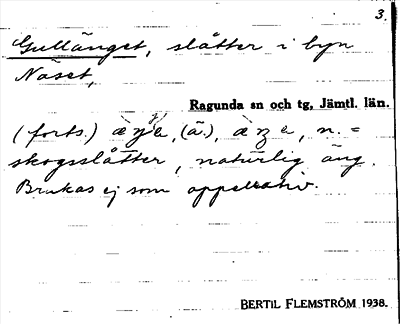 3.
Gullänget, slåtter i byn
Näset,
Ragunda sn och tg, Jämtl. län.
(forts.) (ä.), n. =
skogsslåtter, naturlig äng.
Brukas ej som appellativ.
BERTIL FLEMSTRÖM 1938.